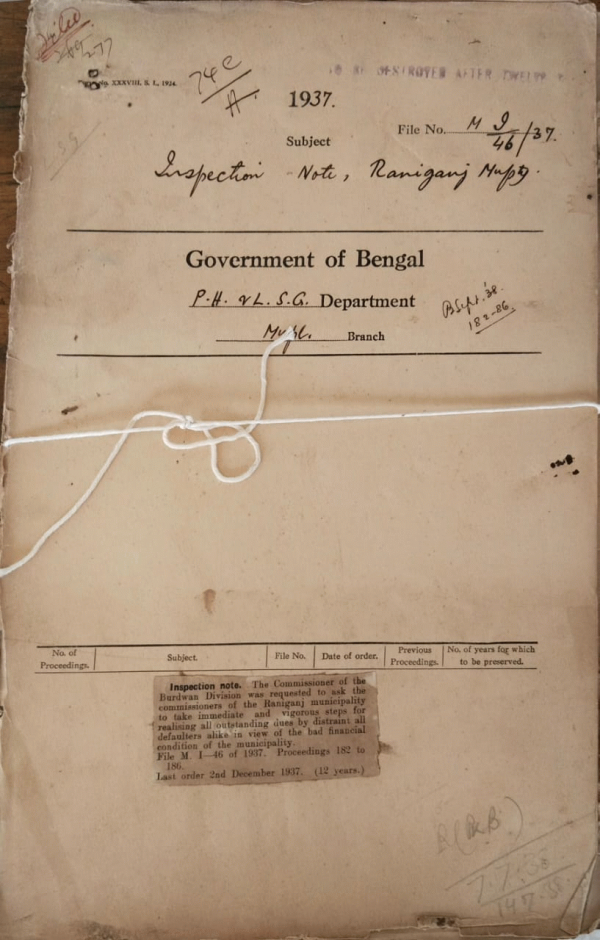 XXXVIII. S. I., 1924.
TO BE DESTROYED AFTER TWELVE
74C
A.
1937.
File No. M I/46/37.
Subject
Inspection Note, Raniganj Mupty.
Government of Bengal
P.H. & L.S.G. Department
B Sept. '38.
182-86
Mupl. Branch
No. of Proceedings. Subject. File No. Date of order. Previous Proceedings. No. of years for which to be preserved.
Inspection note. The Commissioner of the
Burdwan Division was requested to ask the
commissioners of the Raniganj municipality
to take immediate and vigorous steps for
realising all outstanding dues by distraint all
defaulters alike in view of the bad financial
condition of the municipality.
File M. I—46 of 1937. Proceedings 182 to
186.
Last order 2nd December 1937. (12 years.)
7.7.38
14.7.38.